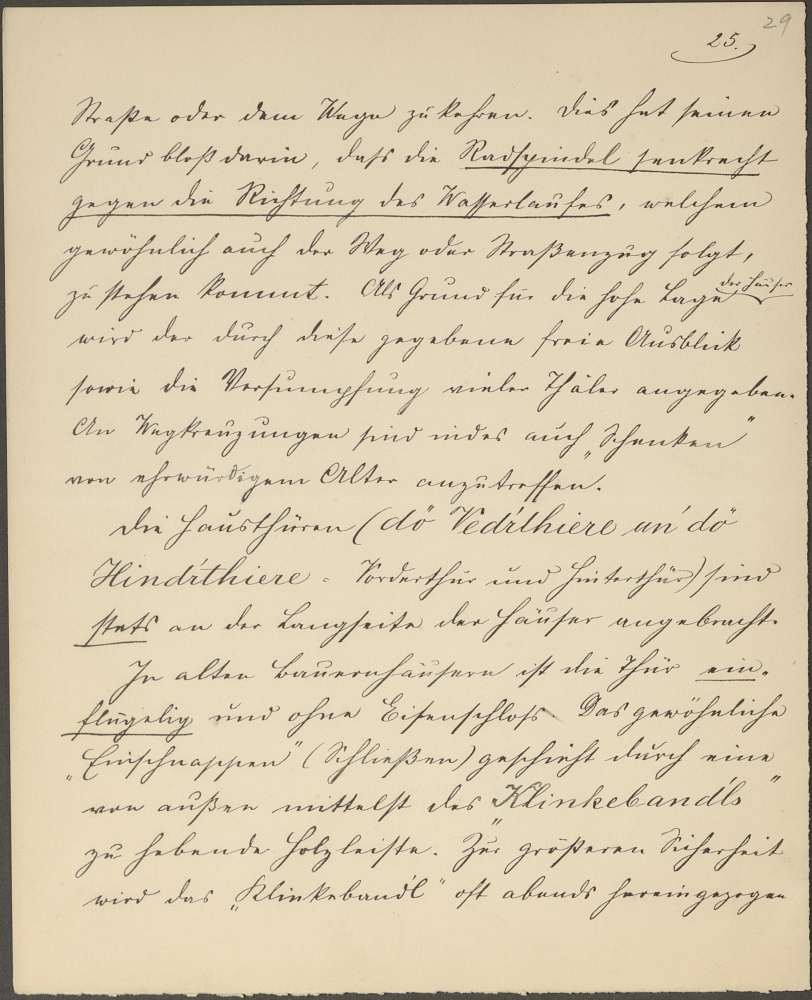 29
25.
Straße oder dem Wege zu kehren. Dies hat seinen
Grund bloß darin, daß die Radspindel senkrecht
gegen die Richtung des Wasserlaufes, welchem
gewöhnlich auch der Weg oder Straßenzug folgt,
zu stehen kommt. Als Grund für die hohe Lage der Häuser
wird der durch diese gegebene freie Ausblick
sowie die Versumpfung vieler Thäler angegeben.
An Wegkreuzungen sind indes auch „Schenken"
von ehrwürdigem Alter anzutreffen.
Die Hausthüren (dö Vedr̍thiere un' dö
Hindr̍thiere = Vorderthür und Hinterthür) sind
stets an der Langseite der Häuser angebracht.
In alten Bauernhäusern ist die Thür ein-
flügelig und ohne Eisenschloß. Das gewöhnliche
„Einschnappen" (Schließen) geschieht durch eine
von außen mittelst des „Klinkebandls"
zu hebende Holzleiste. Zur größeren Sicherheit
wird das „Klinkebandl" oft abends hereingezogen